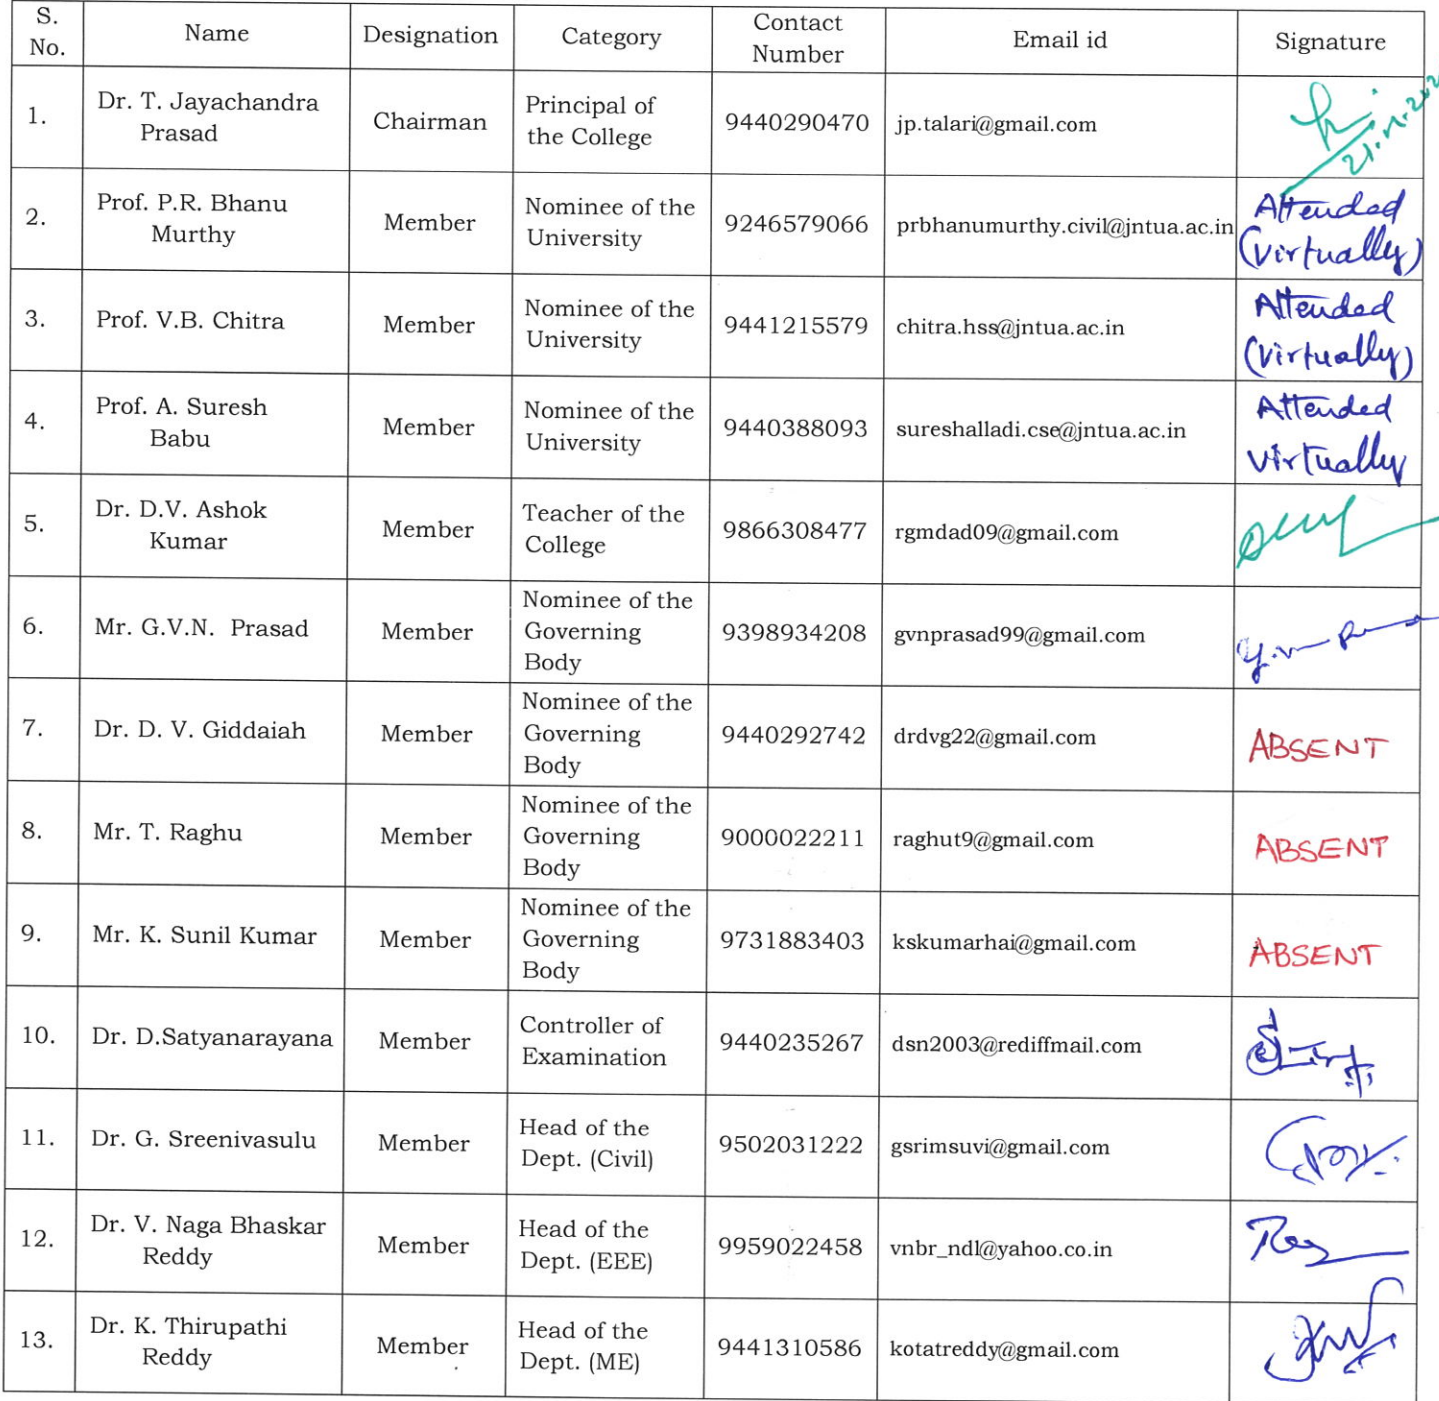 S. No. Name Designation Category Contact Number Email id Signature
1. Dr. T. Jayachandra Prasad Chairman Principal of the College 9440290470 jp.talari@gmail.com
2. Prof. P.R. Bhanu Murthy Member Nominee of the University 9246579066 prbhanumurthy.civil@jntua.ac.in Attended (virtually)
3. Prof. V.B. Chitra Member Nominee of the University 9441215579 chitra.hss@jntua.ac.in Attended (virtually)
4. Prof. A. Suresh Babu Member Nominee of the University 9440388093 sureshalladi.cse@jntua.ac.in Attended virtually
5. Dr. D.V. Ashok Kumar Member Teacher of the College 9866308477 rgmdad09@gmail.com
6. Mr. G.V.N. Prasad Member Nominee of the Governing Body 9398934208 gvnprasad99@gmail.com
7. Dr. D. V. Giddaiah Member Nominee of the Governing Body 9440292742 drdvg22@gmail.com ABSENT
8. Mr. T. Raghu Member Nominee of the Governing Body 9000022211 raghut9@gmail.com ABSENT
9. Mr. K. Sunil Kumar Member Nominee of the Governing Body 9731883403 kskumarhai@gmail.com ABSENT
10. Dr. D.Satyanarayana Member Controller of Examination 9440235267 dsn2003@rediffmail.com
11. Dr. G. Sreenivasulu Member Head of the Dept. (Civil) 9502031222 gsrimsuvi@gmail.com
12. Dr. V. Naga Bhaskar Reddy Member Head of the Dept. (EEE) 9959022458 vnbr_ndl@yahoo.co.in
13. Dr. K. Thirupathi Reddy Member Head of the Dept. (ME) 9441310586 kotatreddy@gmail.com